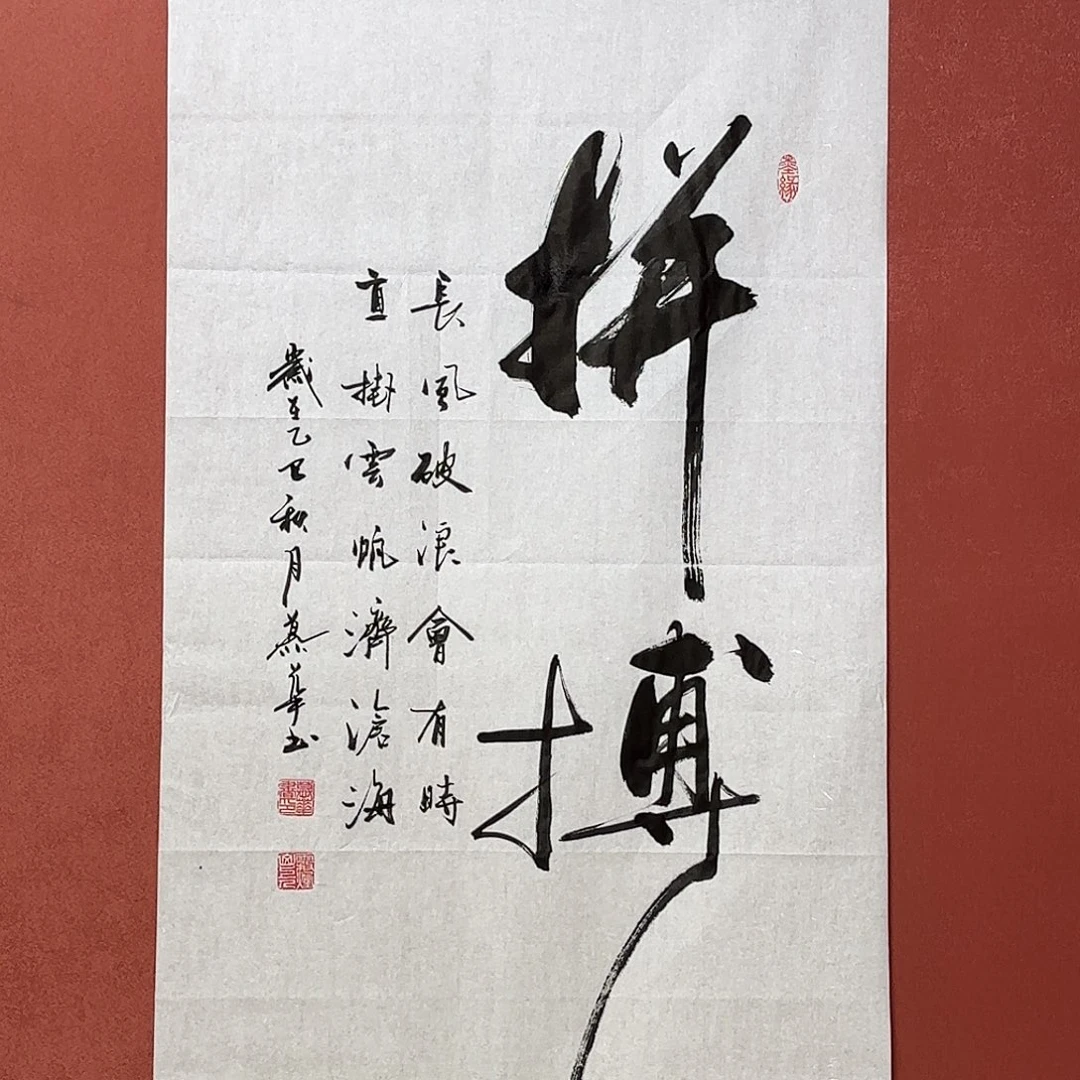 墨緣
拼搏
長風破浪會有時
直掛雲帆濟滄海
歲至乙巳秋月燕華书